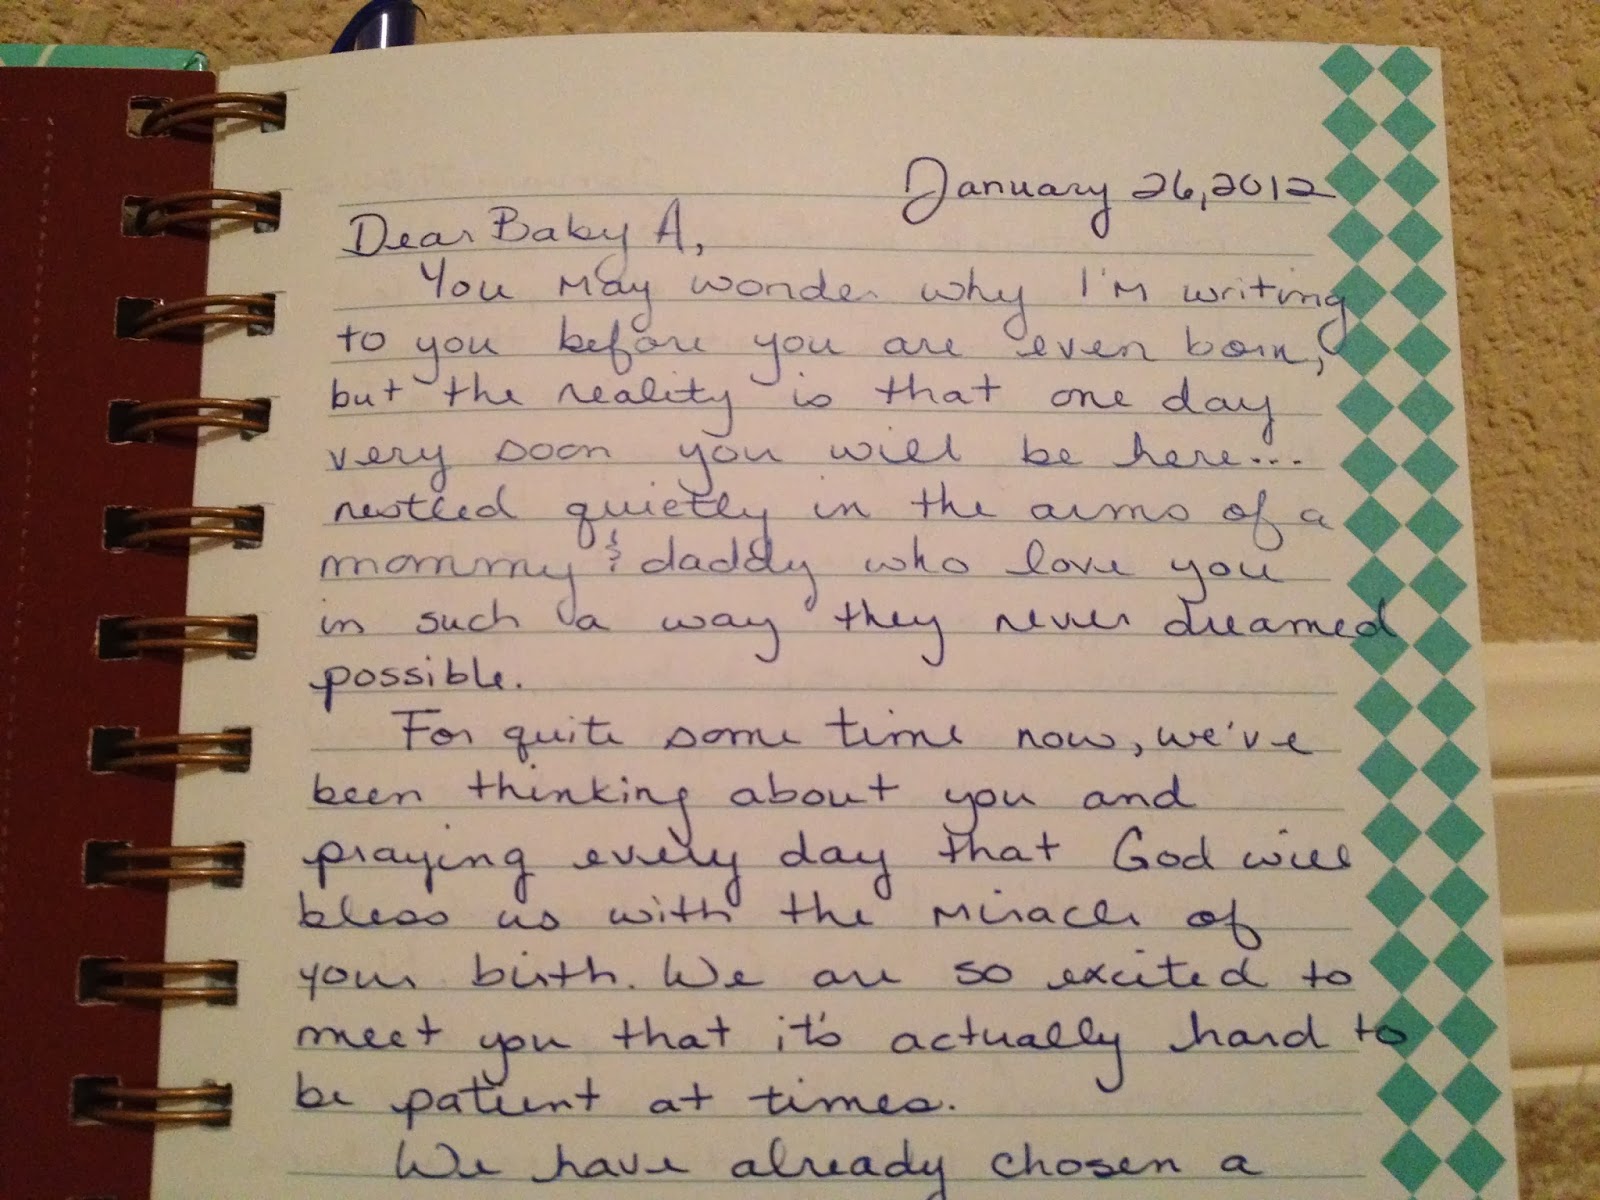 January 26, 2012
Dear Baby A,
You may wonder why I'm writing
to you before you are even born,
but the reality is that one day
very soon you will be here...
nestled quietly in the arms of a
mommy & daddy who love you
in such a way they never dreamed
possible.
For quite some time now, we've
been thinking about you and
praying every day that God will
bless us with the miracle of
your birth. We are so excited to
meet you that it's actually hard to
be patient at times.
We have already chosen a